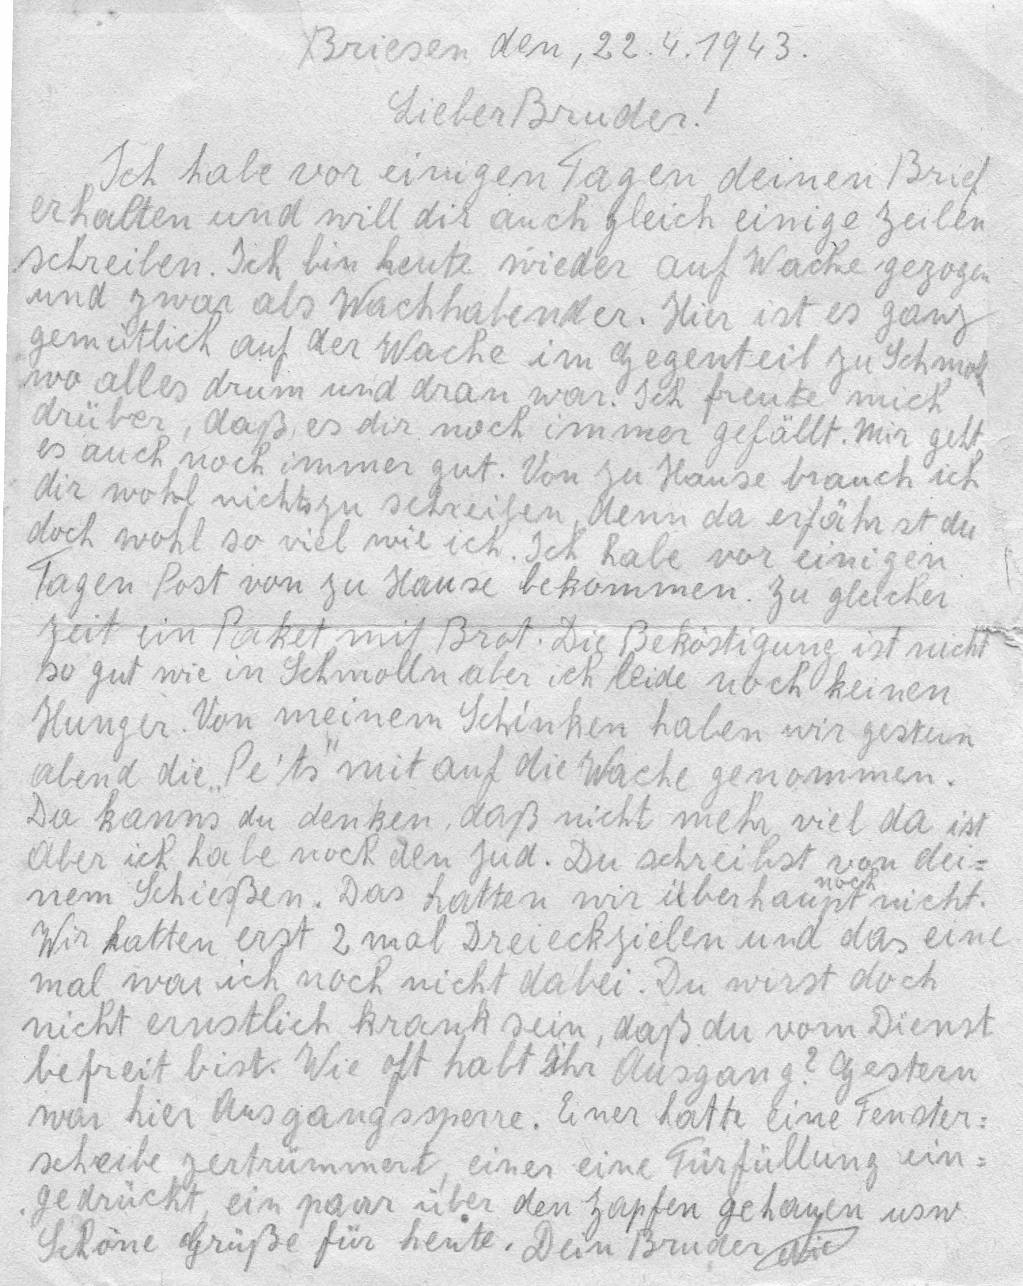 Briesen den, 22.4.1943.
Lieber Bruder!
Ich habe vor einigen Tagen deinen Brief
erhalten und will dir auch gleich einige Zeilen
schreiben. Ich bin heute wieder auf Wache gezogen
und zwar als Wachhabender. Hier ist es ganz
gemütlich auf der Wache im Gegenteil zu Schmoll
wo alles drum und dran war. Ich freute mich
drüber, daß es dir noch immer gefällt. Mir geht
es auch noch immer gut. Von zu Hause brauch ich
dir wohl nichts zu schreiben, denn da erfährst du
doch wohl so viel wie ich. Ich habe vor einigen
Tagen Post von zu Hause bekommen. Zu gleicher
Zeit ein Paket mit Brot. Die Beköstigung ist nicht
so gut wie in Schmolln aber ich leide noch keinen
Hunger. Von meinem Schinken haben wir gestern
abend die „Pe'ts" mit auf die Wache genommen.
Da kanns du denken, daß nicht mehr viel da ist
Aber ich habe noch den Jud. Du schreibst von dei=
nem Schießen. Das hatten wir überhaupt noch nicht.
Wir hatten erst 2 mal Dreieckzielen und das eine
mal war ich noch nicht dabei. Du wirst doch
nicht ernstlich krank sein, daß du vom Dienst
befreit bist. Wie oft habt Ihr Ausgang? Gestern
war hier Ausgangssperre. Einer hatte eine Fenster=
scheibe zertrümmert, einer eine Türfüllung ein=
gedrückt, ein paar über den Zapfen gehauen usw
Schöne Grüße für heute. Dein Bruder